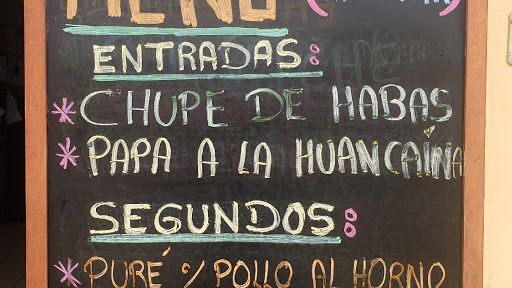 MENÚ
ENTRADAS:
* CHUPE DE HABAS
* PAPA A LA HUANCAÍNA
SEGUNDOS:
* PURÉ c/ POLLO AL HORNO